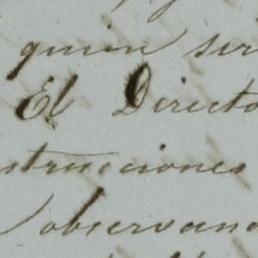 quien ser
El Directo
strucciones
observand